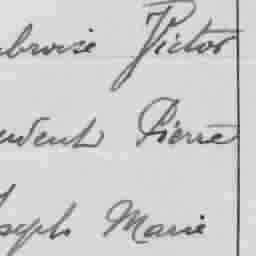 mbroise Victor
udent Pierre
oseph Marie